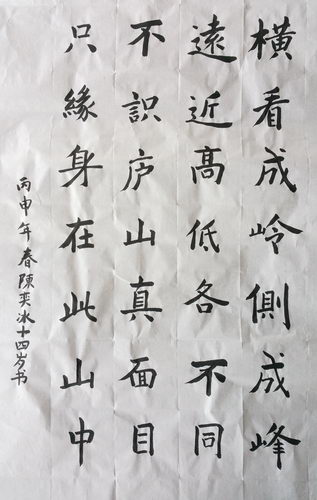 橫看成岭側成峰
遠近高低各不同
不識庐山真面目
只緣身在此山中
丙申年春陳奕冰十四岁书